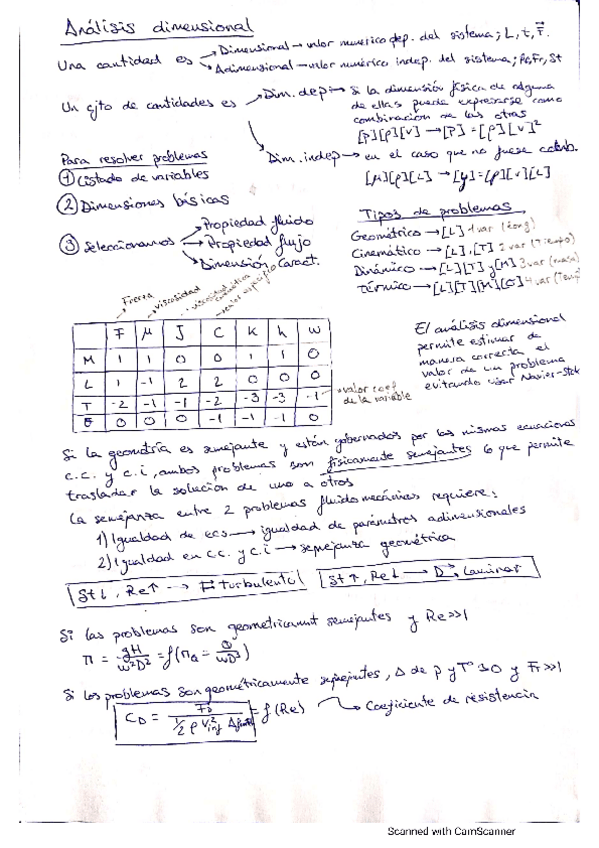 Análisis dimensional
Una cantidad es → Dimensional → valor numérico dep. del sistema; L, t, F.
→ Adimensional → valor numérico indep. del sistema; Re, Fr, St
Un cjto de cantidades es → Dim. dep → si la dimensión física de alguna
de ellas puede expresarse como
combinación de las otras
[p][ρ][v] → [p] = [ρ][v]²
→ Dim. indep → en el caso que no fuese comb.
[μ][ρ][L] → [μ]=[ρ][v][L]
Para resolver problemas
① Listado de variables
② Dimensiones básicas
③ Seleccionamos → Propiedad fluido
→ Propiedad flujo
→ Dimensión Caract.
Tipos de problemas
Geométrico → [L] 1 var (long)
Cinemático → [L], [T] 2 var (Tiempo)
Dinámico → [L][T] y [M] 3 var (masa)
Térmico → [L][T][M][Θ] 4 var (Temp)
Fuerza
viscosidad
viscosidad cinemática
calor específico
F μ J C K h w
M 1 1 0 0 1 1 0
L 1 -1 2 2 0 0 0
T -2 -1 -1 -2 -3 -3 -1
Θ 0 0 0 -1 -1 -1 0
→ valor coef
de la variable
El análisis dimensional
permite estimar de
manera correcta el
valor de un problema
evitando usar Navier-Stok
Si la geometría es semejante y están gobernados por las mismas ecuaciones
c.c. y c.i, ambos problemas son físicamente semejantes lo que permite
trasladar la solución de uno a otros
La semejanza entre 2 problemas fluidomecánicos requiere:
1) Igualdad de ecs → igualdad de parámetros adimensionales
2) Igualdad en c.c. y c.i → semejanza geométrica
St↓, Re↑ --→ F turbulento
St↑, Re↓ → Laminar
Si los problemas son geometricamnt semejantes y Re>>1
π = gH / w²D² = f(πQ = Q / wD³)
Si los problemas son geométricamente semejantes, Δ de p y Tº ≃0 y Fr>>1
CD = FD / ½ ρ V²inf A = f(Re) → Coeficiente de resistencia
Scanned with CamScanner